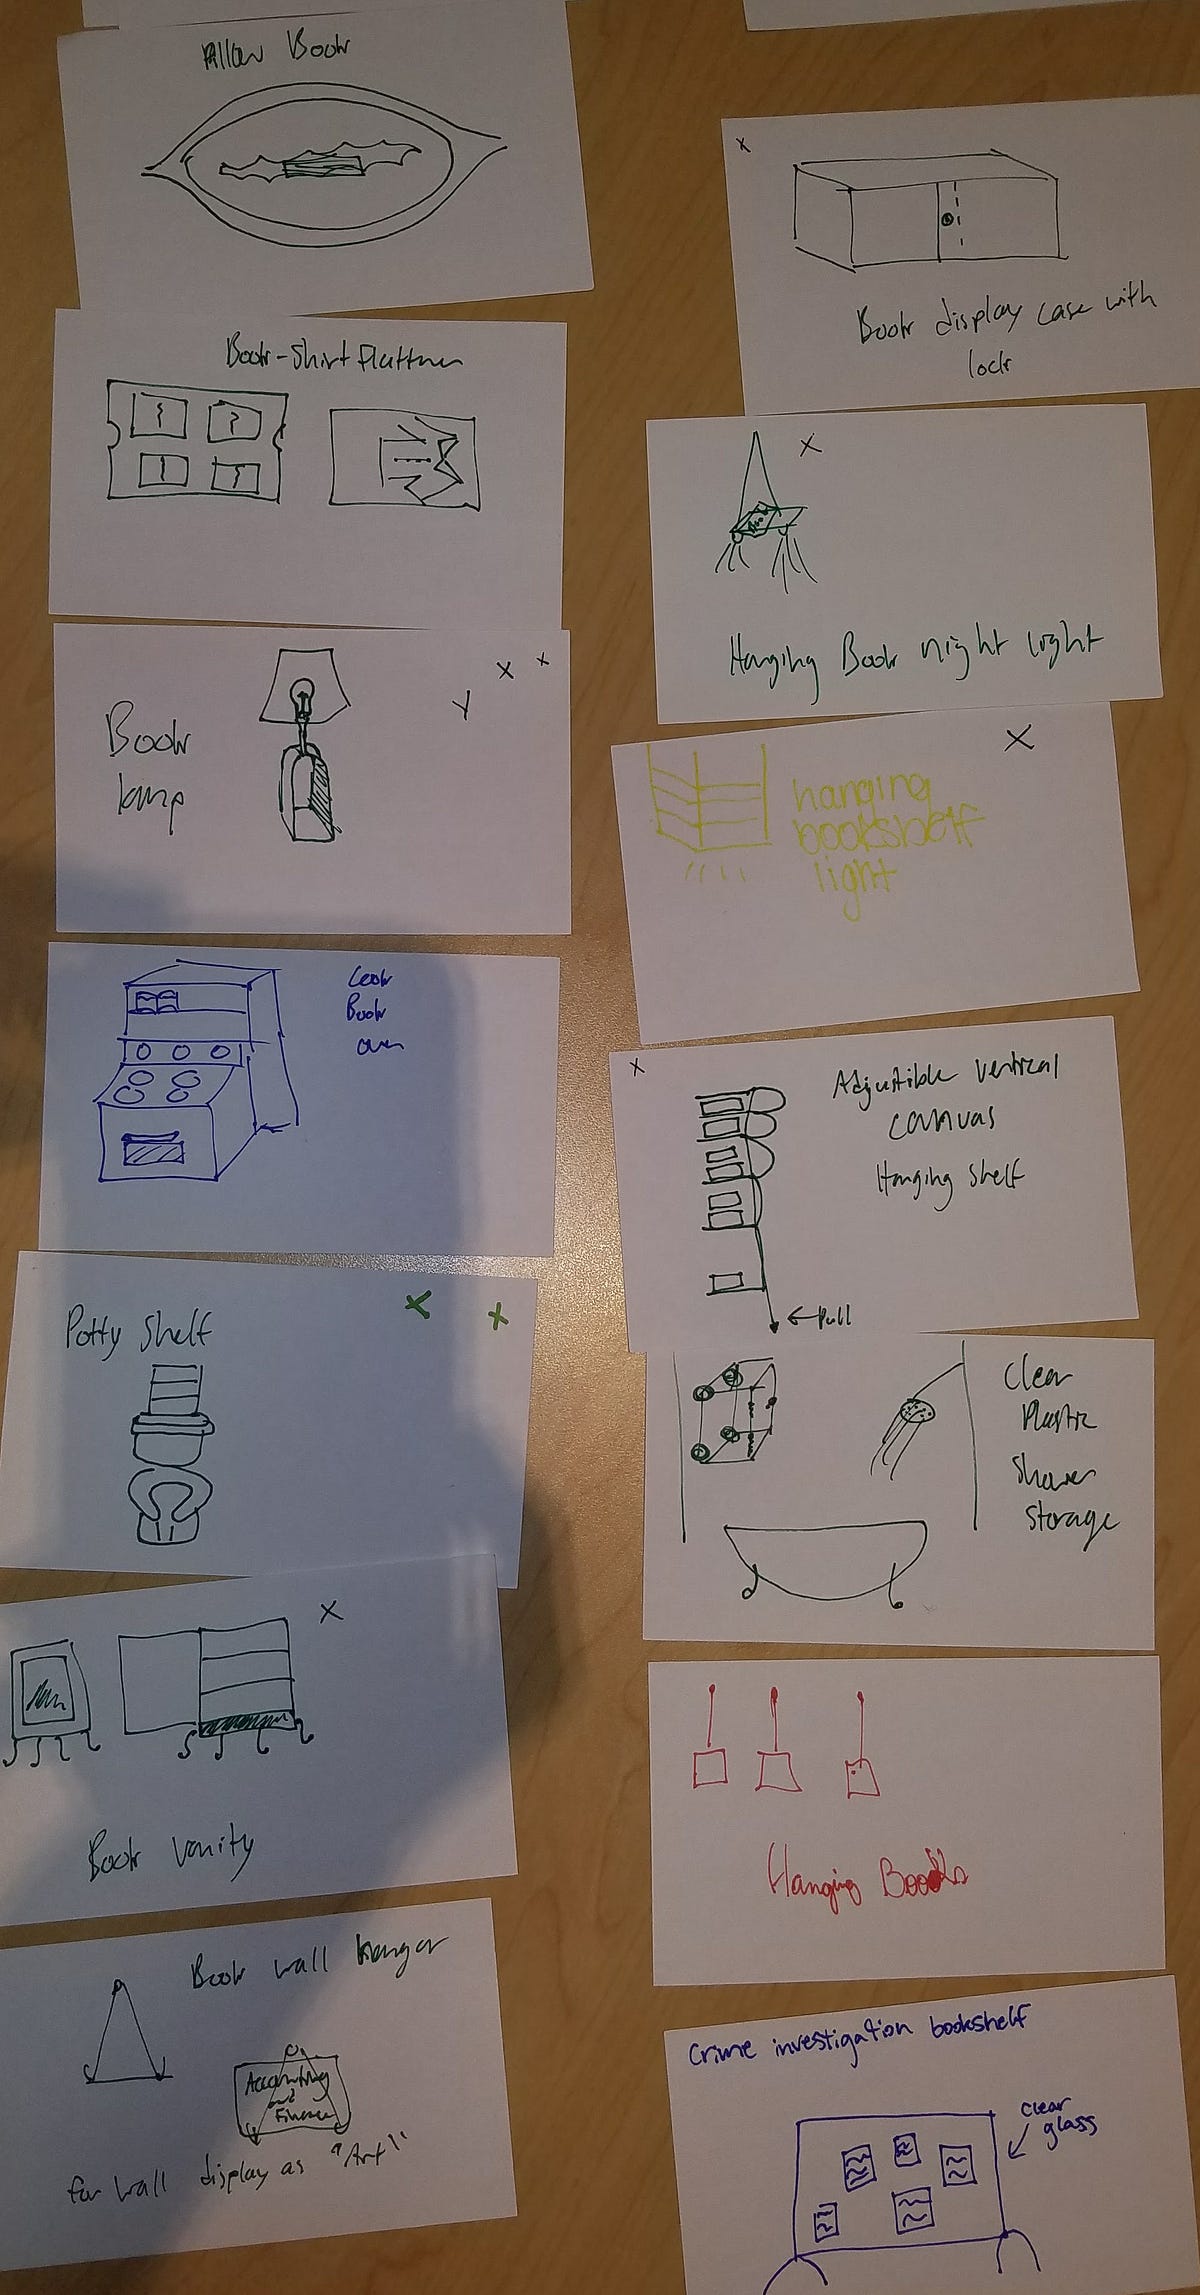 Pillow Book
Book-Shirt Flattner
X X
Y
Book
lamp
Cook
Book
oven
X X
Potty Shelf
X
Book vanity
Book wall hanger
Accounting
and
Finance
for wall display as "Art"
X
Book display case with
lock
X
Hanging Book night light
X
hanging
bookshelf
light
X
Adjustible vertical
canvas
Hanging shelf
←Pull
Clear
Plastic
Shower
storage
Hanging Books
Crime investigation bookshelf
clear
glass